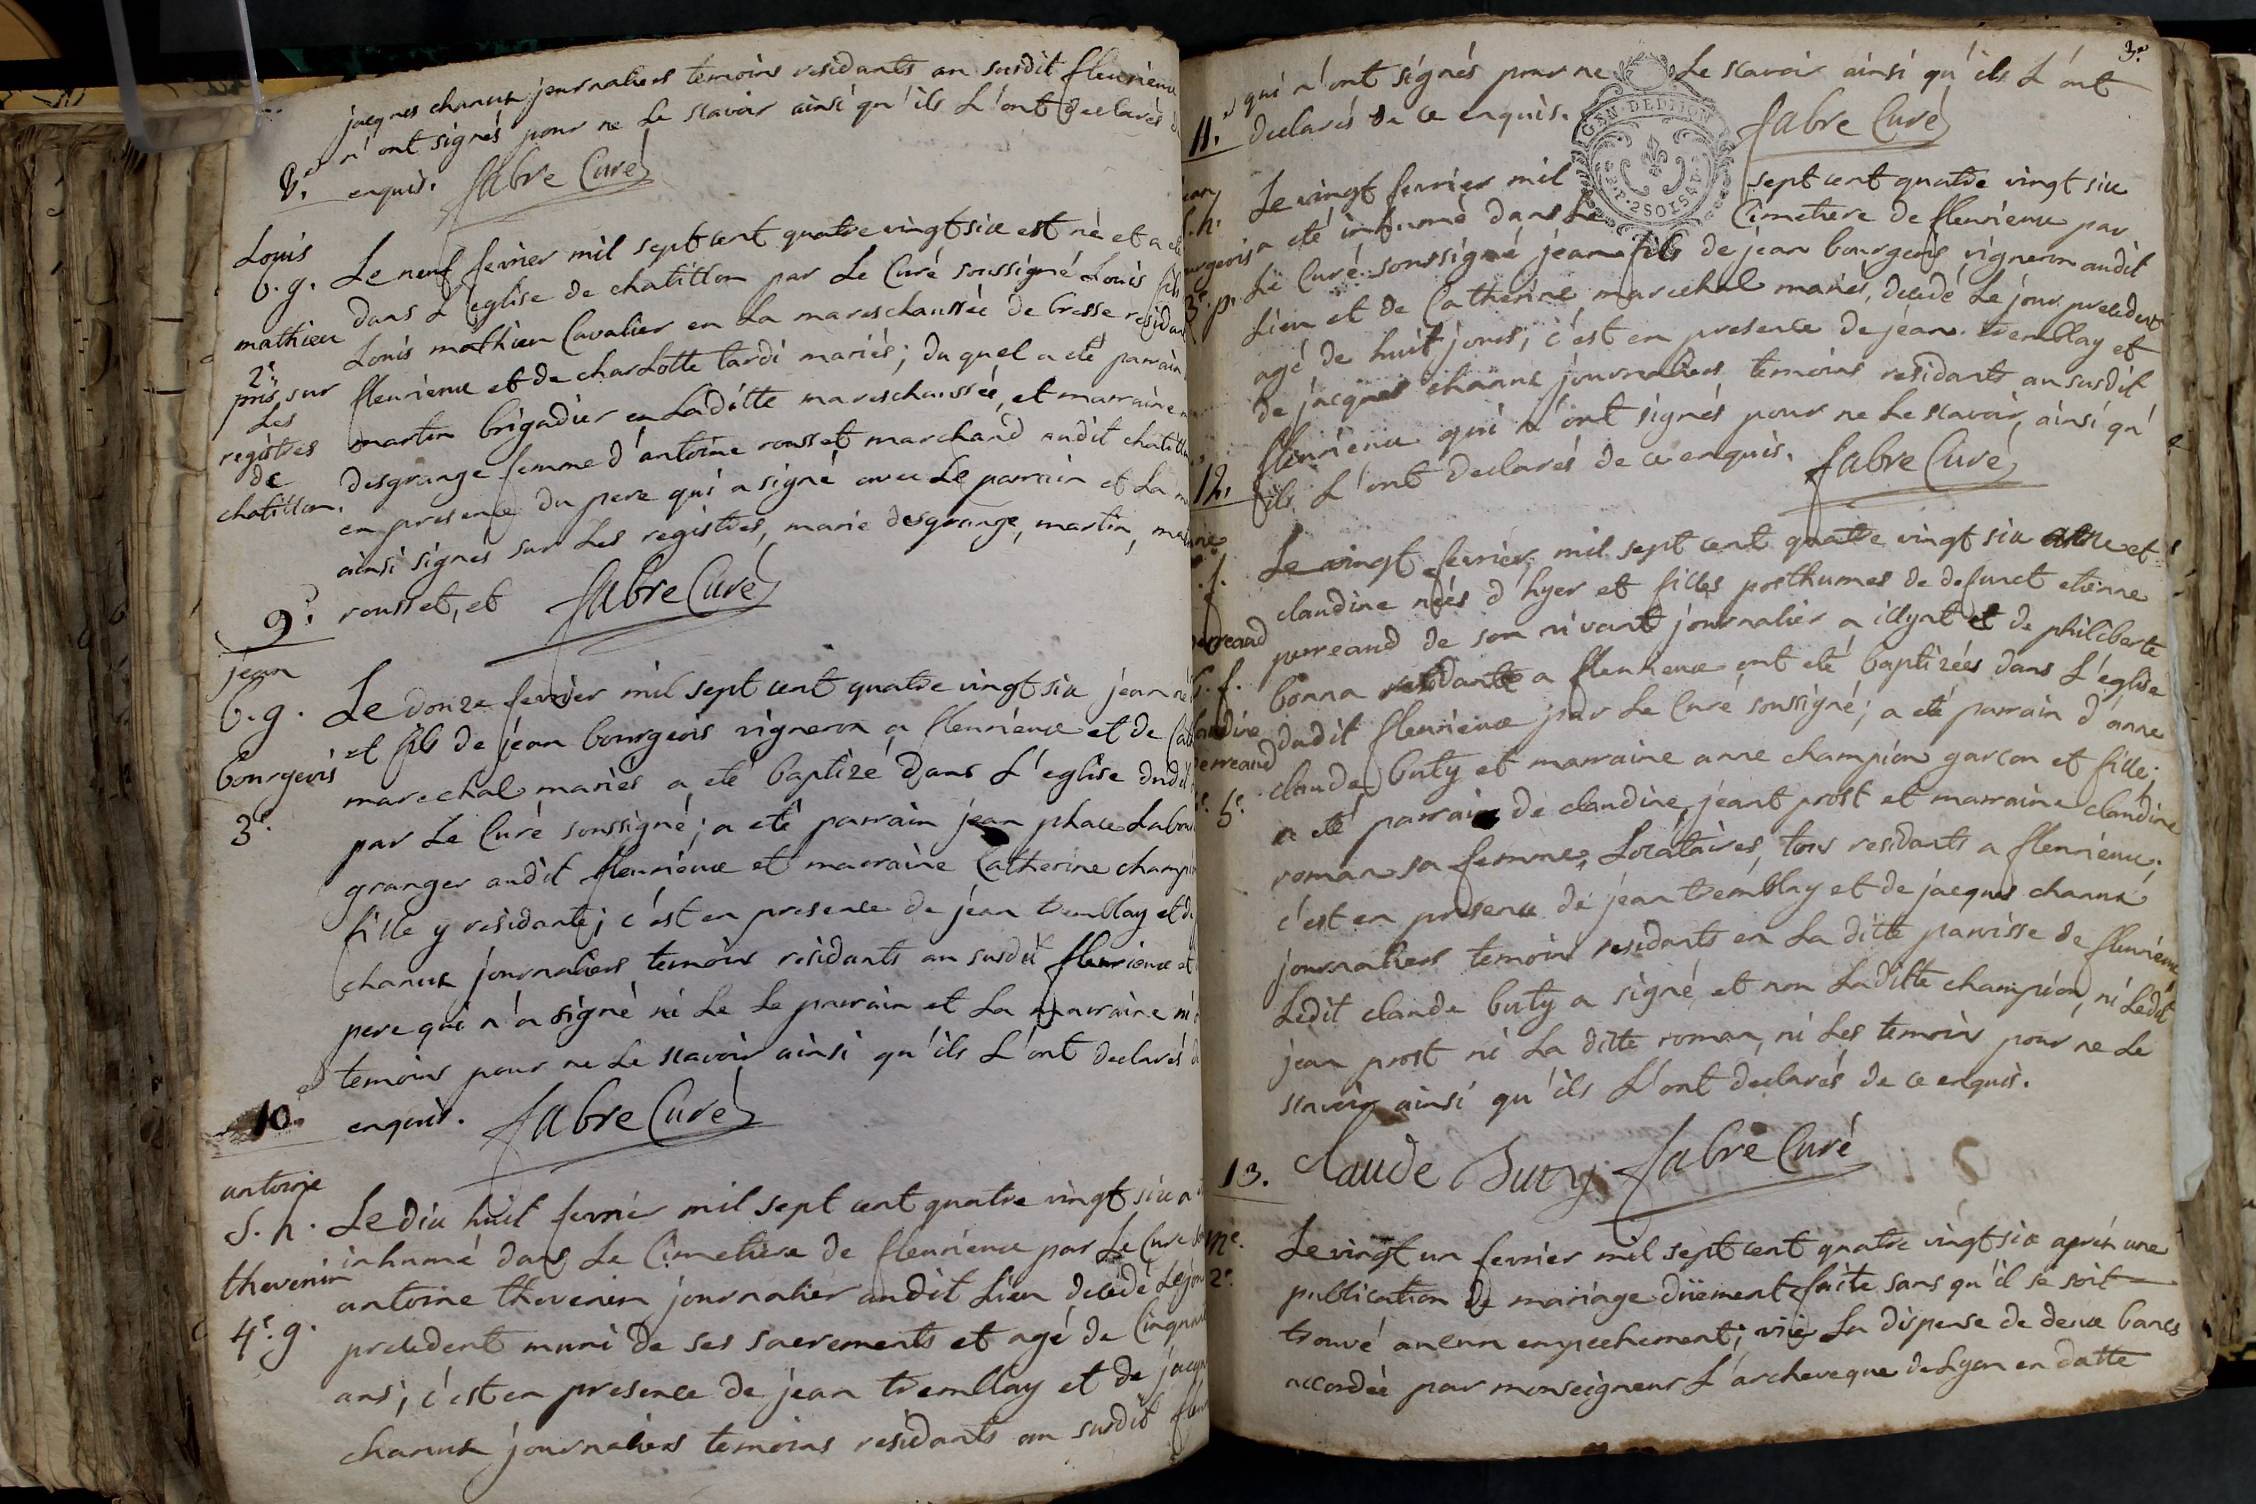 jacques chanux journaliers temoins residants au susdit fleurieux
n'ont signés pour ne le scavoir ainsi qu'ils l'ont declarés
8.e enquis. fabre Curé
Louis
b. g. Le neuf fevrier mil sept cent quatre vingt six est né et a été
dans l'eglise de chatillon par Le Curé soussigné Louis fils
mathieu Louis mathieu Cavalier en La mareschaussée de bresse resident
2.e fleurieux et de charlotte tardi mariés; du quel a eté parrain
pris sur martin brigadier en Laditte mareschaussée, et marraine
Les
registres desgrange femme d'antoine rousset marchand audit chatillon
de
chatillon. en presence du pere qui a signé avec Le parrain et La
ainsi signés sur Les registres, marie desgrange, martin,
9.e rousset, et fabre Curé
jean
b. g. Le douze fevrier mil sept cent quatre vingt six jean né
et fils de jean bourgeois vigneron a fleurieux et de
bourgeois marechal mariés a eté baptizé dans L'eglise dudit
3.e par Le Curé soussigné; a eté parrain jean place
granger audit fleurieux et marraine Catherine champion
fille y residante; c'est en presence de jean tremblay et de
chanux journaliers temoins residants au susdit fleurieux et
pere qui n'a signé ni Le Le parrain et La marraine ni
temoins pour ne Le scavoir ainsi qu'ils L'ont declarés
10.e enquis. fabre Curé
antoine
S. h. Le dix huit fevrier mil sept cent quatre vingt six a
inhumé dans Le Cimetiere de fleurieux par Le Curé
thevenin antoine thevenin journalier audit Lieu decedé Le jour
4.e g. precedent muni de ses sacrements et agé de Cinquante
ans; c'est en presence de jean tremblay et de
chanux journaliers temoins residants au susdit
3.e
qui n'ont signés pour ne Le scavoir ainsi qu'ils L'ont
11.e declarés de ce enquis. fabre Curé
GEN. DEDIJON
2 SOLS
S. h. Le vingt fevrier mil sept cent quatre vingt six
a eté inhumé dans Le Cimetiere de fleurieux par
Le Curé soussigné jean fils de jean bourgeois vigneron audit
3.e p. Lieu et de Catherine marechal mariés, decedé Le jour precedent
agé de huit jours; c'est en presence de jean tremblay et
de jacques chanux journaliers temoins residants au susdit
fleurieux qui n'ont signés pour ne Le scavoir, ainsi qu'
12. ils L'ont declarés de ce enquis. fabre Curé
Le vingt fevrier mil sept cent quatre vingt six anne et
f. claudine néés d'hyer et filles posthumes de defunct etienne
perreaud perreaud de son vivant journalier a illyat et de philiberte
b. f. bonna residante a fleurieux ont eté baptizées dans L'église
claudine dudit fleurieux par Le Curé soussigné; a eté parrain d'anne
perreaud claude buty et marraine anne champion garcon et fille;
5.e a eté parrain de claudine jeant prost et marraine claudine
roman sa femme, Locataires, tous residants a fleurieux;
c'est en presence de jean tremblay et de jacques chanux
journaliers temoins residants en La ditte parroisse de fleurieux
Ledit claude buty a signé et non Laditte champion, ni Ledit
jean prost ni La ditte roman, ni Les temoins pour ne Le
scavoir ainsi qu'ils L'ont declarés de ce enquis.
13. Claude Buty fabre Curé
m.e Le vingt un fevrier mil sept cent quatre vingt six aprés une
2.e publication de mariage düement faite sans qu'il se soit
trouvé aucun empechement; vüe La dispense de deux bancs
accordée par monseigneur L'archeveque de Lyon en datte